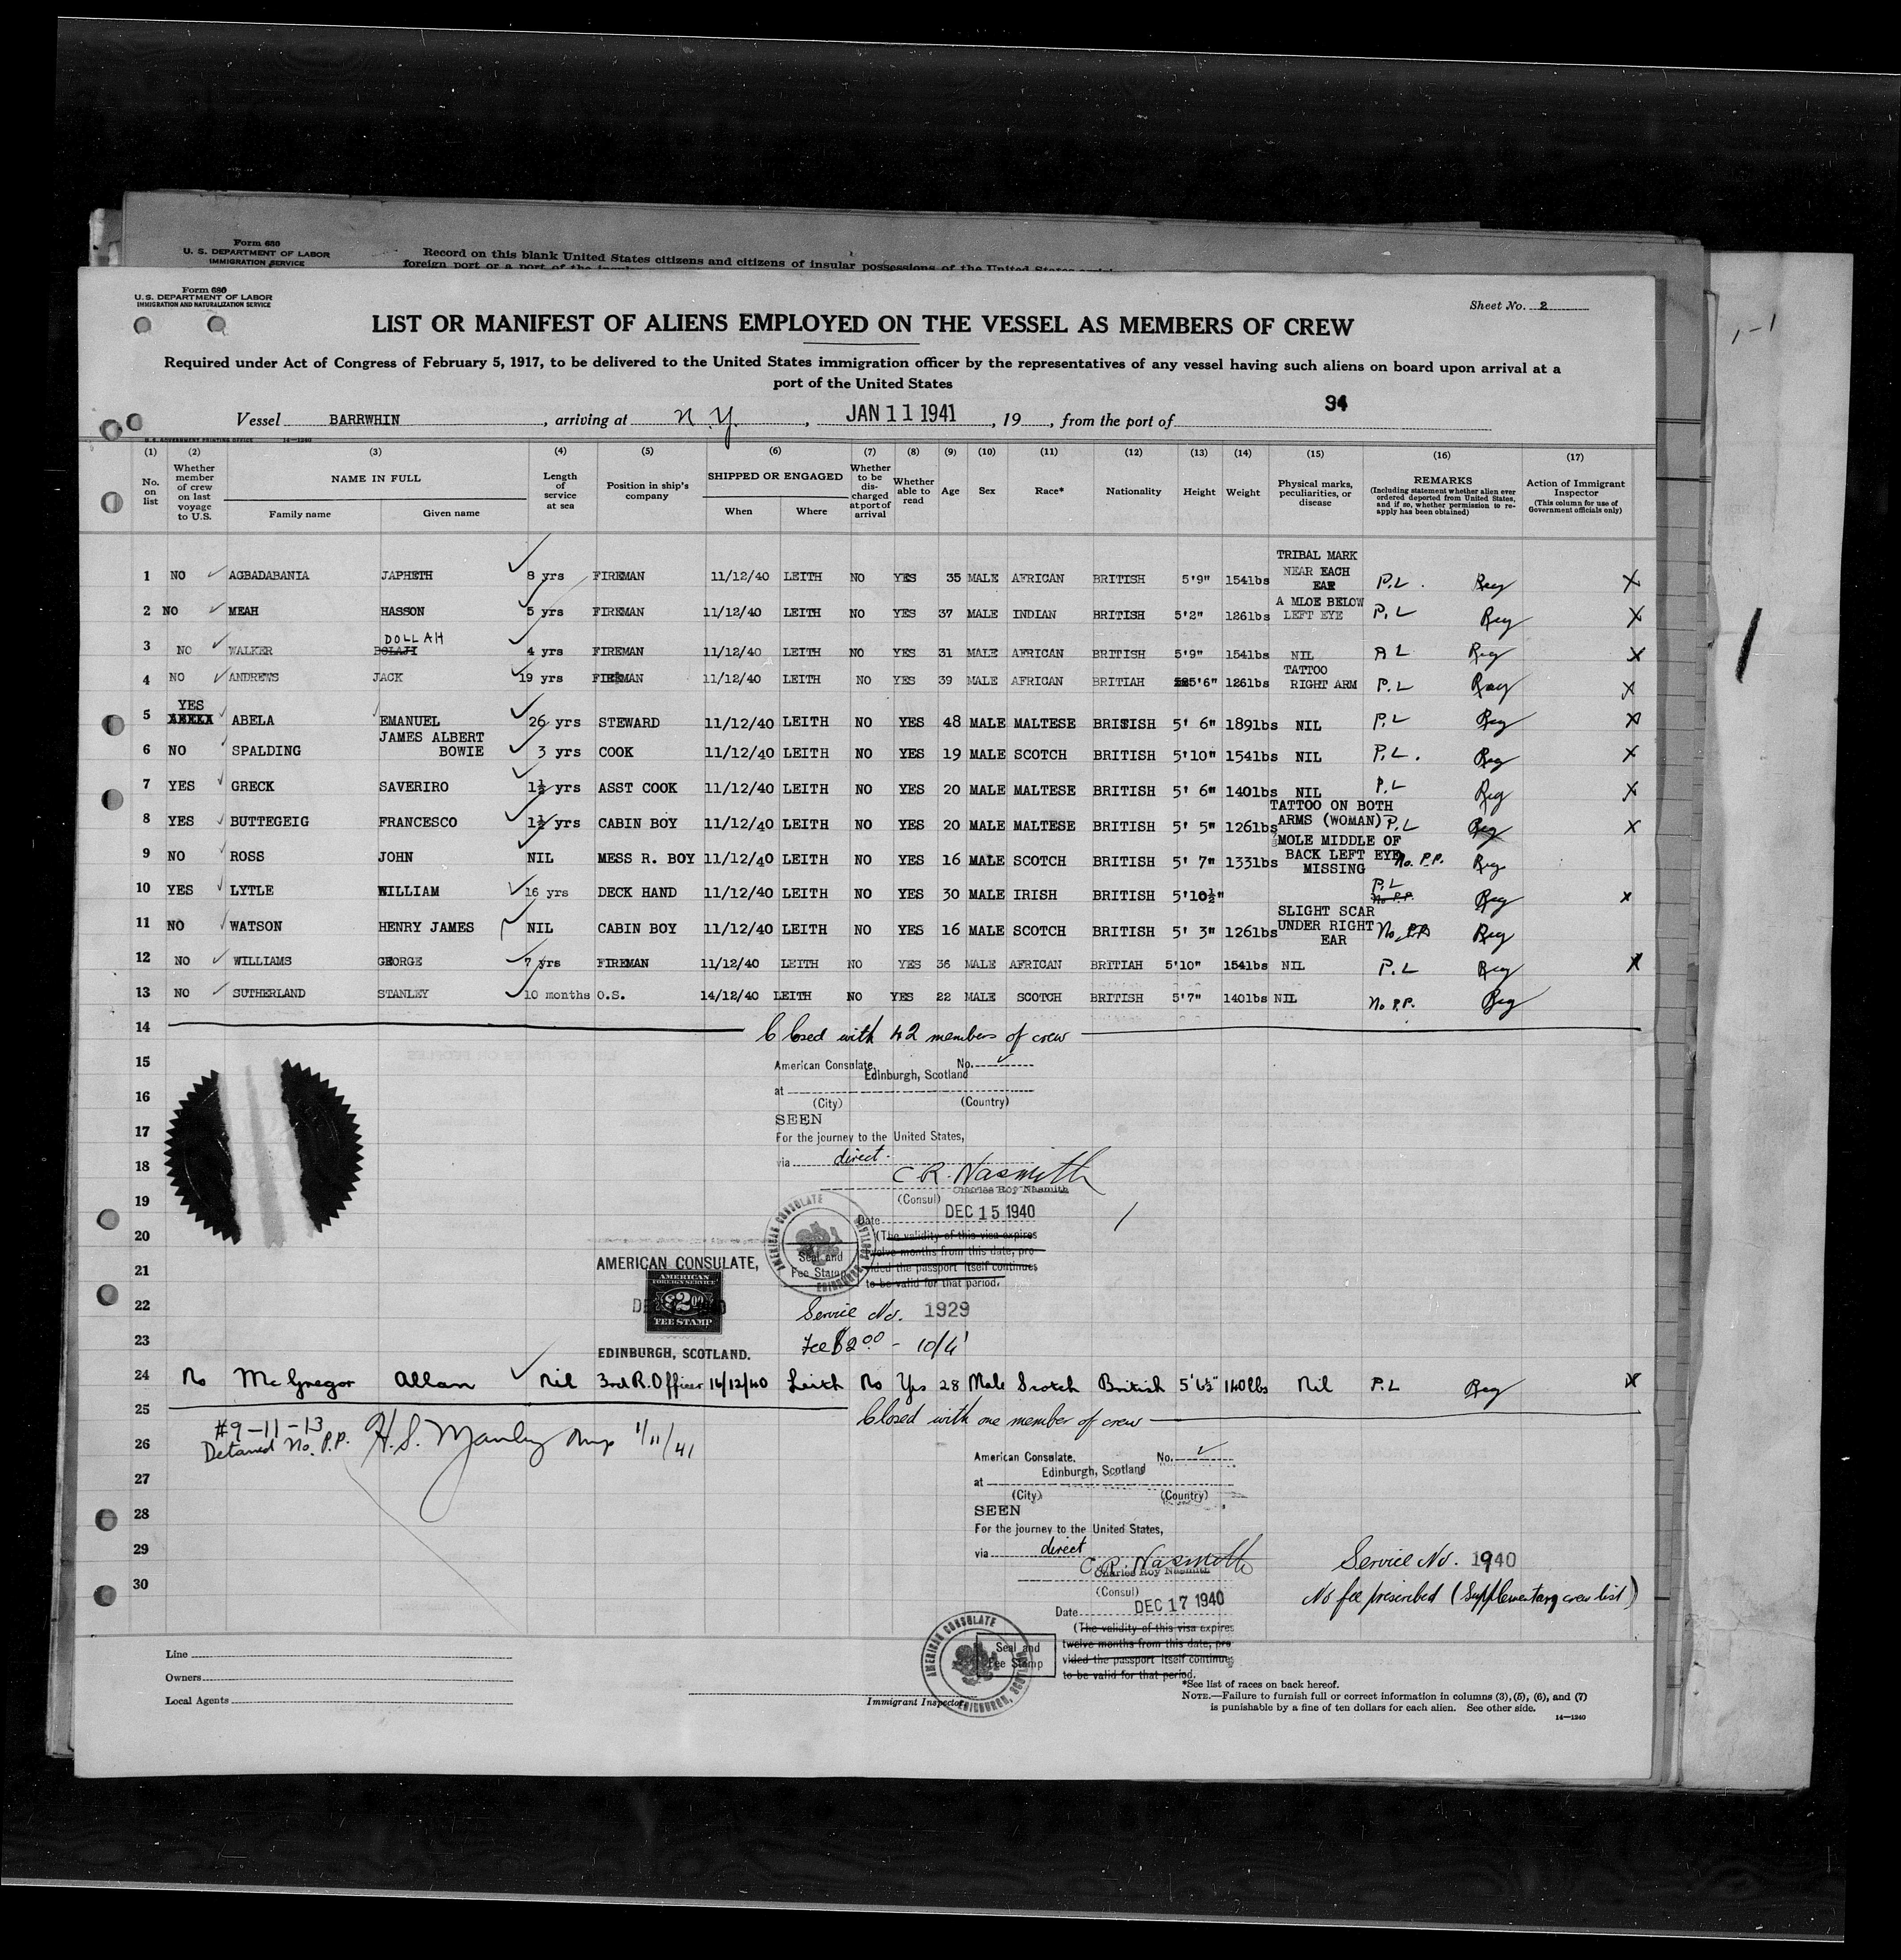 Form 680
U. S. DEPARTMENT OF LABOR
IMMIGRATION SERVICE
Record on this blank United States citizens and citizens of insular possessions of the United States
foreign port or a port of the
Form 680
U. S. DEPARTMENT OF LABOR
IMMIGRATION AND NATURALIZATION SERVICE
Sheet No. 2
LIST OR MANIFEST OF ALIENS EMPLOYED ON THE VESSEL AS MEMBERS OF CREW
Required under Act of Congress of February 5, 1917, to be delivered to the United States immigration officer by the representatives of any vessel having such aliens on board upon arrival at a
port of the United States
94
Vessel BARRWHIN, arriving at N.Y., JAN 11 1941, 19, from the port of
U. S. GOVERNMENT PRINTING OFFICE 14—1240
(1) (2) (3) (4) (5) (6) (7) (8) (9) (10) (11) (12) (13) (14) (15) (16) (17)
No. on list
Whether member of crew on last voyage to U.S.
NAME IN FULL
Family name Given name
Length of service at sea
Position in ship's company
SHIPPED OR ENGAGED
When Where
Whether to be discharged at port of arrival
Whether able to read
Age
Sex
Race*
Nationality
Height
Weight
Physical marks, peculiarities, or disease
REMARKS
(Including statement whether alien ever ordered deported from United States, and if so, whether permission to reapply has been obtained)
Action of Immigrant Inspector
(This column for use of Government officials only)
1 NO AGBADABANIA JAPHETH 8 yrs FIREMAN 11/12/40 LEITH NO YES 35 MALE AFRICAN BRITISH 5'9" 154lbs TRIBAL MARK NEAR EACH EAR P.L. Reg X
2 NO MEAH HASSON 5 yrs FIREMAN 11/12/40 LEITH NO YES 37 MALE INDIAN BRITISH 5'2" 126lbs A MLOE BELOW LEFT EYE P.L Reg X
3 NO WALKER DOLLAH BOLAJI 4 yrs FIREMAN 11/12/40 LEITH NO YES 31 MALE AFRICAN BRITISH 5'9" 154lbs NIL A L Reg X
4 NO ANDREWS JACK 19 yrs FIREMAN 11/12/40 LEITH NO YES 39 MALE AFRICAN BRITIAH 5'6" 126lbs TATTOO RIGHT ARM P.L Reg X
5 YES ABELA EMANUEL 26 yrs STEWARD 11/12/40 LEITH NO YES 48 MALE MALTESE BRISISH 5' 6" 189lbs NIL P.L Reg X
6 NO SPALDING JAMES ALBERT BOWIE 3 yrs COOK 11/12/40 LEITH NO YES 19 MALE SCOTCH BRITISH 5'10" 154lbs NIL P.L. Reg X
7 YES GRECK SAVERIRO 1½ yrs ASST COOK 11/12/40 LEITH NO YES 20 MALE MALTESE BRITISH 5' 6" 140lbs NIL P.L Reg X
8 YES BUTTEGEIG FRANCESCO 1½ yrs CABIN BOY 11/12/40 LEITH NO YES 20 MALE MALTESE BRITISH 5' 5" 126lbs TATTOO ON BOTH ARMS (WOMAN) P.L Reg X
9 NO ROSS JOHN NIL MESS R. BOY 11/12/40 LEITH NO YES 16 MALE SCOTCH BRITISH 5' 7" 133lbs MOLE MIDDLE OF BACK LEFT EYE MISSING No. P.P. Reg
10 YES LYTLE WILLIAM 16 yrs DECK HAND 11/12/40 LEITH NO YES 30 MALE IRISH BRITISH 5'10½" P.L No P.P. Reg X
11 NO WATSON HENRY JAMES NIL CABIN BOY 11/12/40 LEITH NO YES 16 MALE SCOTCH BRITISH 5' 3" 126lbs SLIGHT SCAR UNDER RIGHT EAR No P.P. Reg
12 NO WILLIAMS GEORGE 7 yrs FIREMAN 11/12/40 LEITH NO YES 36 MALE AFRICAN BRITIAH 5'10" 154lbs NIL P.L Reg X
13 NO SUTHERLAND STANLEY 10 months O.S. 14/12/40 LEITH NO YES 22 MALE SCOTCH BRITISH 5'7" 140lbs NIL No P.P. Reg
14 Closed with 42 members of crew
15 American Consulate, No.
Edinburgh, Scotland
16 at
(City) (Country)
SEEN
17 For the journey to the United States,
18 via direct.
C R. Nasmith
Charles Roy Nasmith
19 (Consul)
Date DEC 15 1940
20 (The validity of this visa expires
twelve months from this date, pro-
21 vided the passport itself continues
to be valid for that period.
AMERICAN CONSULATE EDINBURGH, SCOTLAND
Seal and
Fee Stamp
AMERICAN CONSULATE,
AMERICAN FOREIGN SERVICE
$2.00
FEE STAMP
EDINBURGH, SCOTLAND.
22 Service No. 1929
23 Fee $2.00 - 10/4
24 No McGregor Allan Nil 3rd R. Officer 16/12/40 Leith No Yes 28 Male Scotch British 5'6½" 140lbs Nil P.L Reg X
25 Closed with one member of crew
#9-11-13
26 Detained No. P.P. H.S. Manley Insp 1/11/41
American Consulate, No.
Edinburgh, Scotland
27 at
(City) (Country)
28 SEEN
For the journey to the United States,
29 via direct
C.R. Nasmith
Charles Roy Nasmith
Service No. 1940
30 (Consul)
No fee prescribed (Supplementary crew list)
Date DEC 17 1940
(The validity of this visa expires
twelve months from this date, pro-
vided the passport itself continues
to be valid for that period.
AMERICAN CONSULATE EDINBURGH, SCOTLAND
Seal and
Fee Stamp
Line
Owners
Local Agents
Immigrant Inspector
*See list of races on back hereof.
NOTE.—Failure to furnish full or correct information in columns (3), (5), (6), and (7)
is punishable by a fine of ten dollars for each alien. See other side.
14—1240